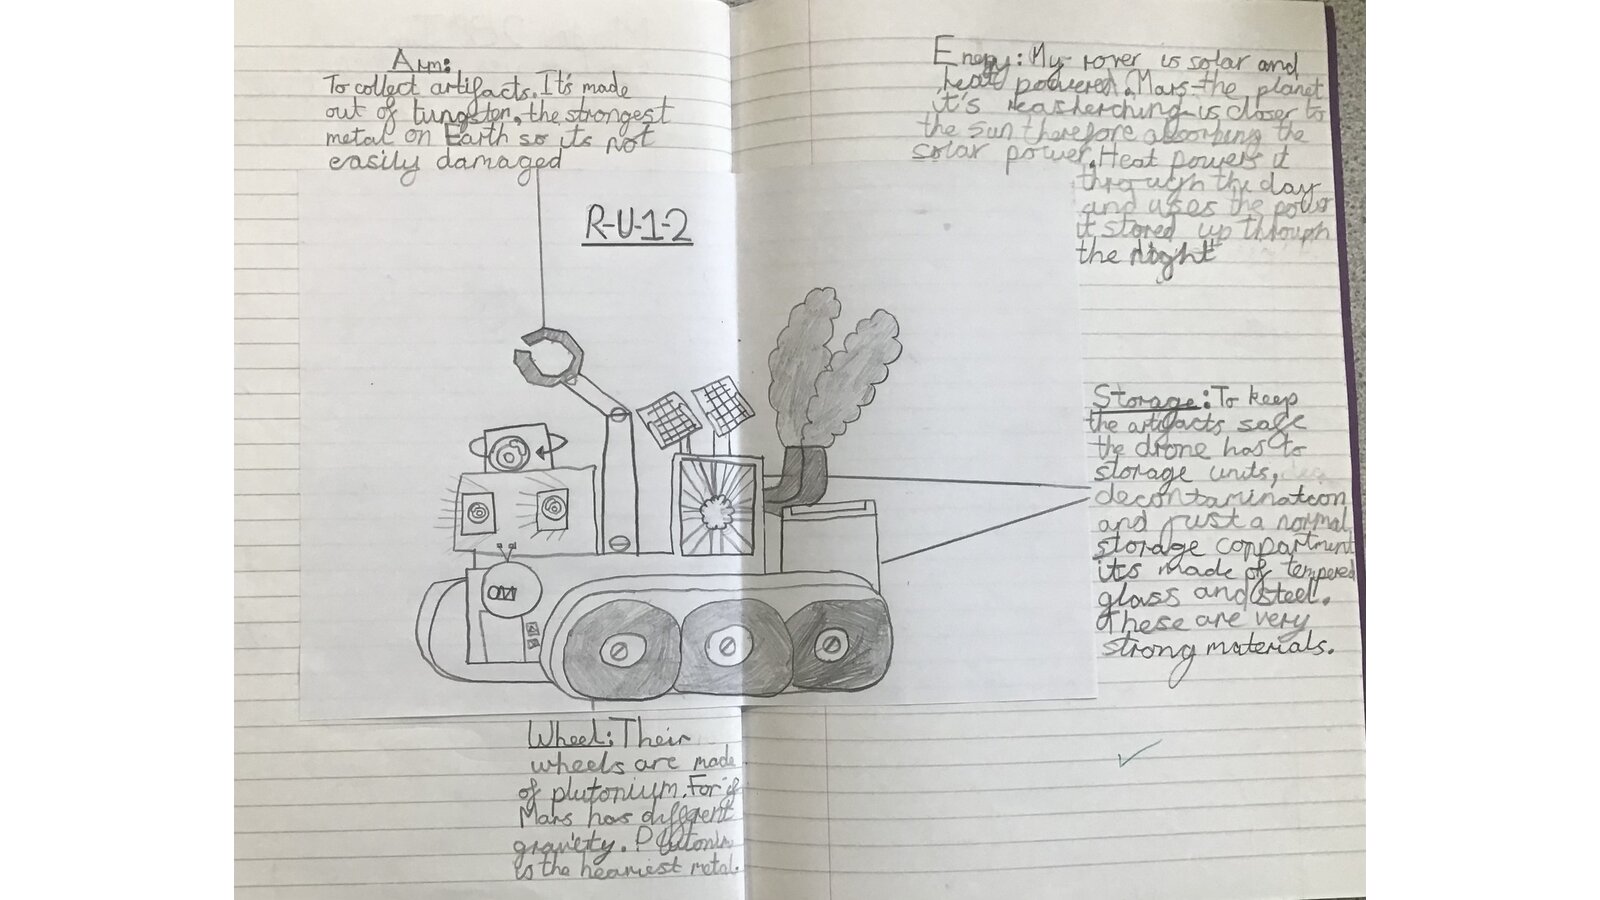 Arm:
To collect artifacts. It's made
out of tungsten, the strongest
metal on Earth so its not
easily damaged
R-U-1-2
Enegy: My rover is solar and
heat powered. Mars the planet
it's reasherching is closer to
the sun therefore absorbing the
solar power. Heat powers it
through the day
and uses the power
it stored up through
the night
Storage: To keep
the artifacts safe
the drone has to
storage units,
decontamination
and just a normal
storage compartment
its made of tempered
glass and steel.
These are very
strong materials.
Wheel: Their
wheels are made
of plutonium. For if
Mars has different
gravity. Plutonium
is the heaviest metal.